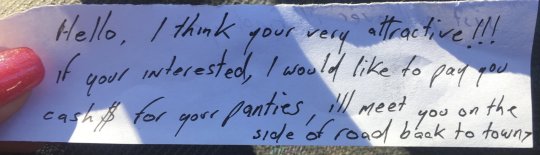 Hello, I think your very attractive!!!
if your interested, I would like to pay you
cash$ for your panties, i'll meet you on the
side of road back to town